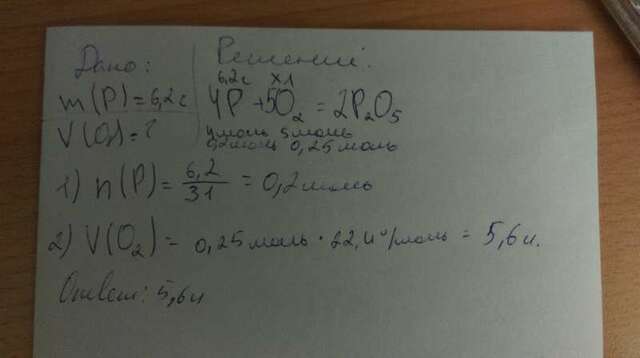 Дано:
m(P)=6,2г
V(O₂)=?
Решение:
6,2г х1
4P+5O₂=2P₂O₅
4моль 5моль
0,2моль 0,25моль
1) n(P)=6,2/31=0,2моль
2) V(O₂)=0,25моль·22,4л/моль=5,6л.
Ответ: 5,6л